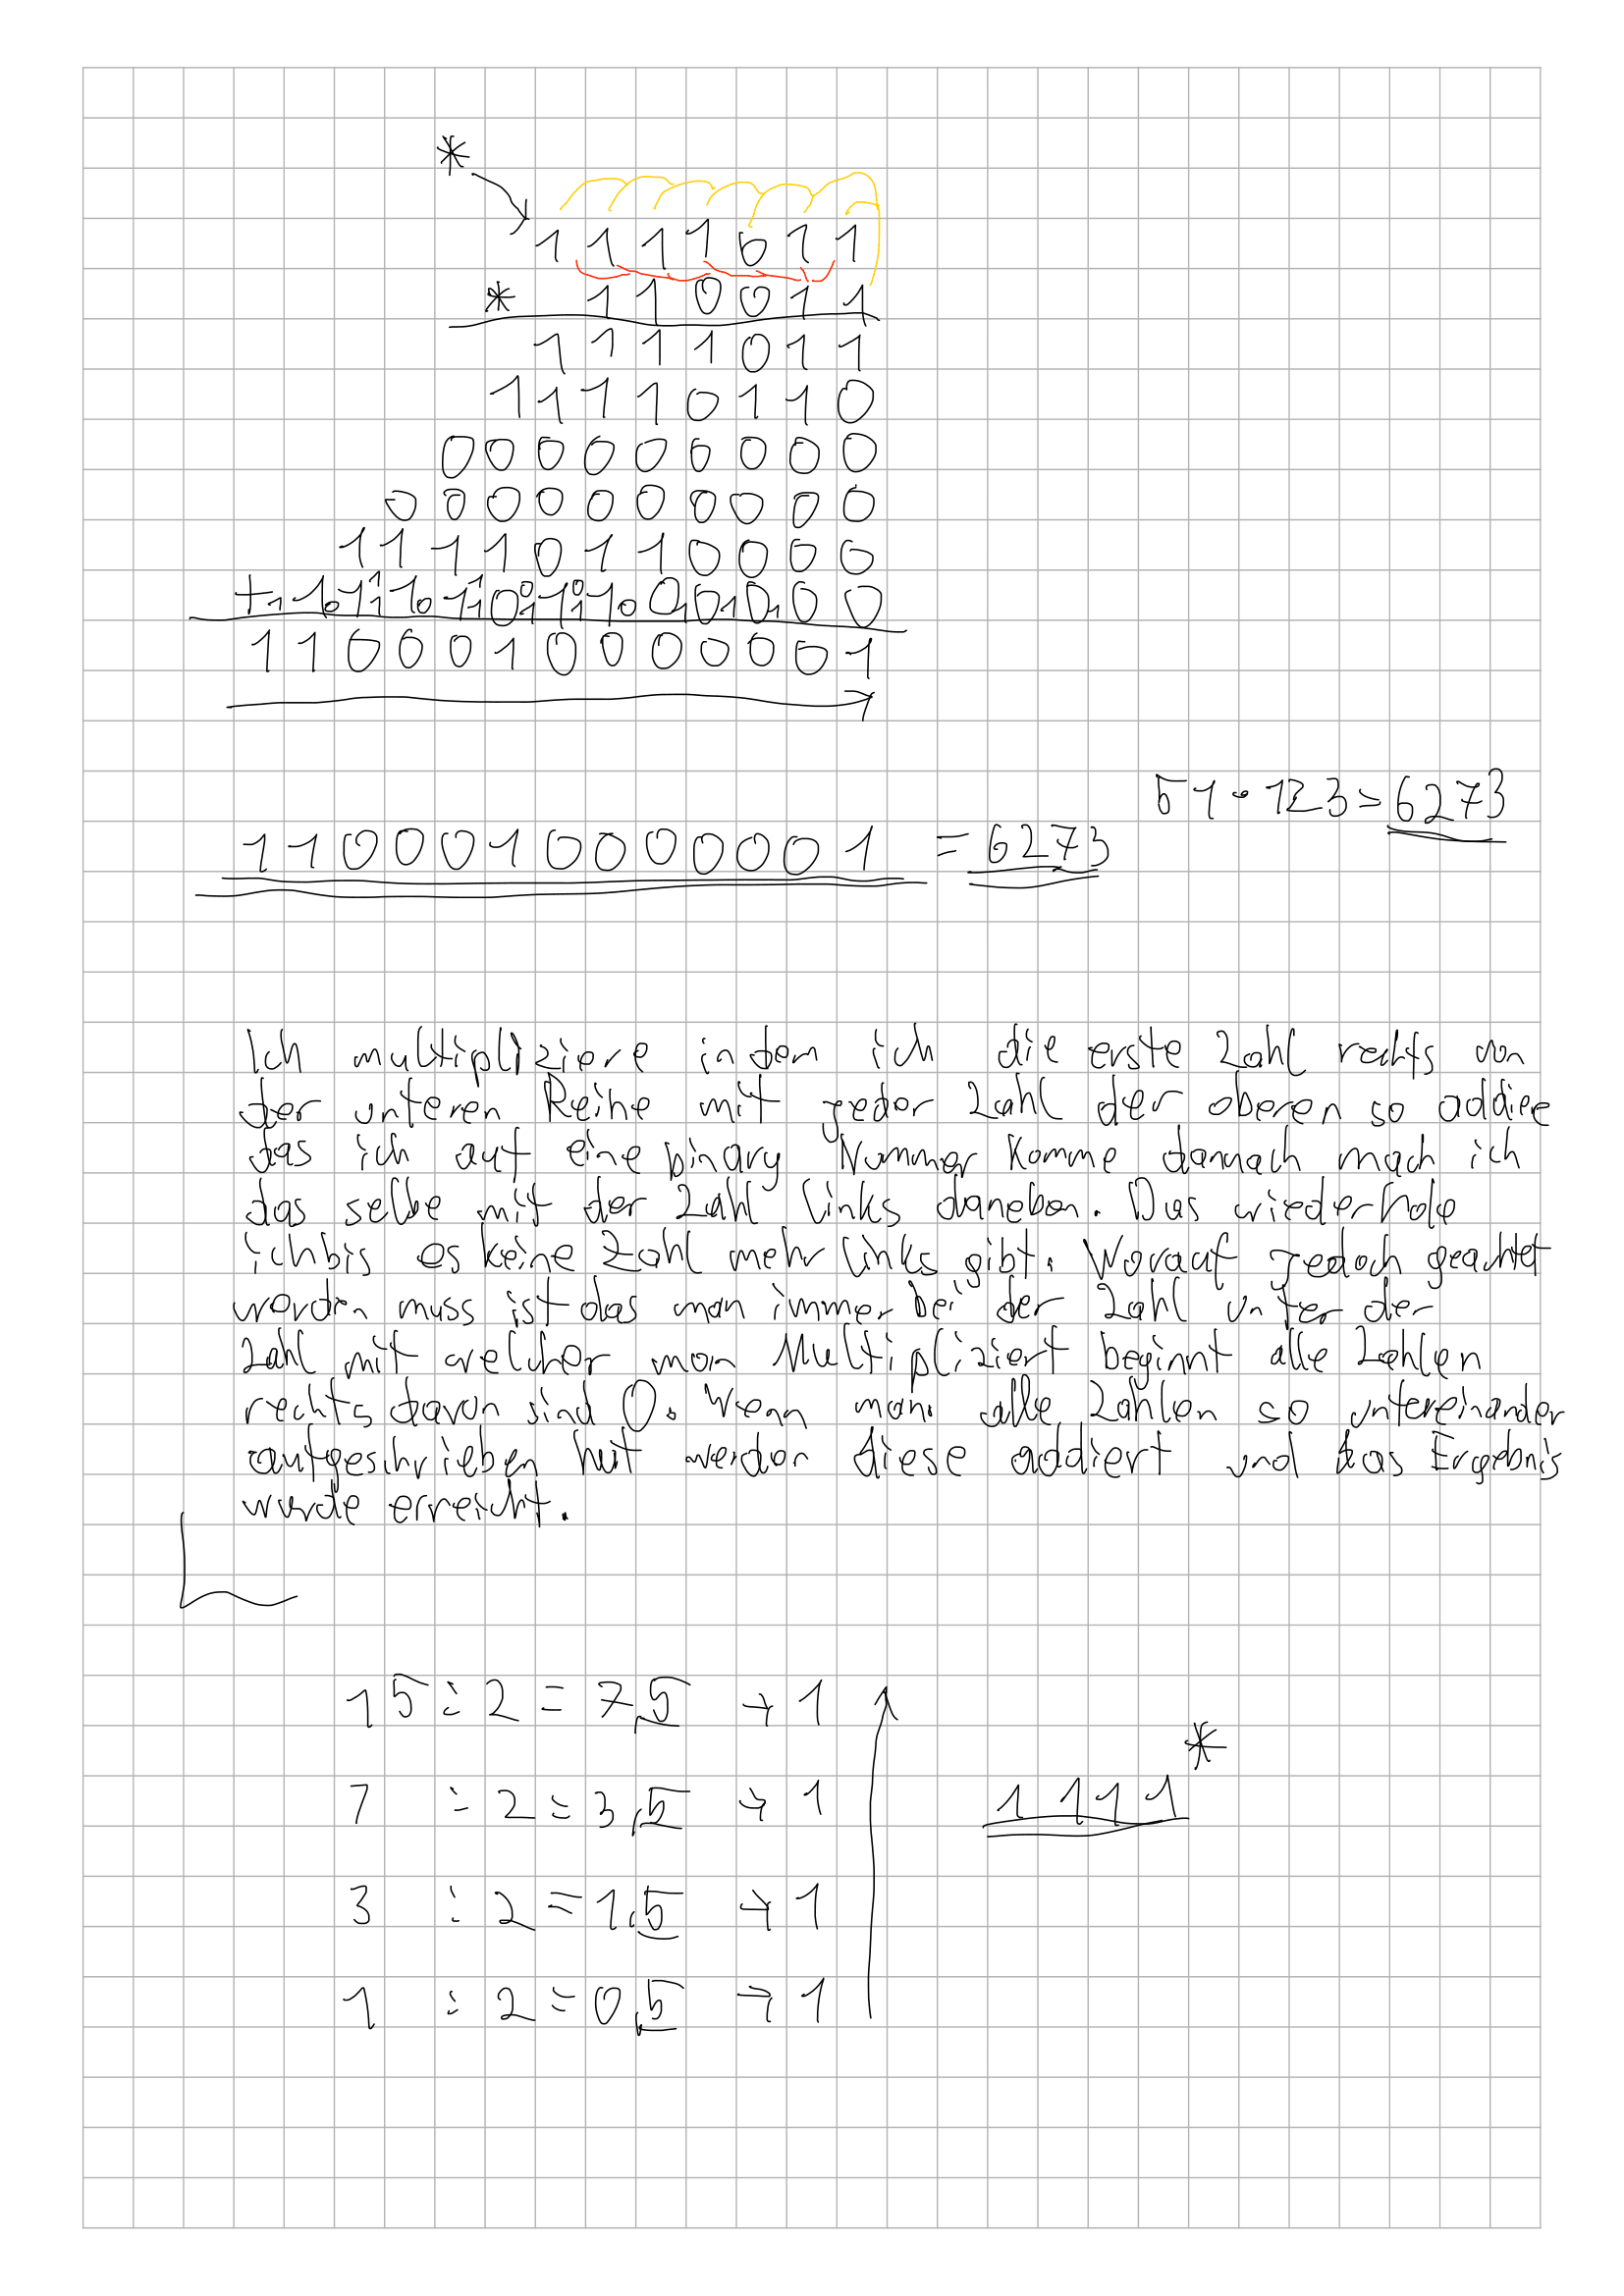 *
1 1 1 1 0 1 1
* 1 1 0 0 1 1
1 1 1 1 0 1 1
1 1 1 1 0 1 1 0
0 0 0 0 0 0 0 0 0
0 0 0 0 0 0 0 0 0 0
1 1 1 1 0 1 1 0 0 0 0
+ 1 1 1 1 0 1 1 0 0 0 0 0
1 1 0 0 0 1 0 0 0 0 0 0 1
51 • 123 = 6273
1 1 0 0 0 1 0 0 0 0 0 0 1 = 6273
Ich multipliziere indem ich die erste Zahl rechts von
der unteren Reihe mit jeder Zahl der oberen so addiere
das ich auf eine binary Nummer komme dannach mach ich
das selbe mit der Zahl links daneben. Das wiederhole
ich bis es keine Zahl mehr links gibt. Worauf jedoch geachtet
werden muss ist das man immer bei der Zahl unter der
Zahl mit welcher man Multipliziert beginnt alle Zahlen
rechts davon sind 0. Wenn man alle Zahlen so untereinander
aufgeschrieben hat werden diese addiert und das Ergebnis
wurde erreicht.
15 : 2 = 7,5 → 1
*
7 : 2 = 3,5 → 1 1 1 1 1
3 : 2 = 1,5 → 1
1 : 2 = 0,5 → 1